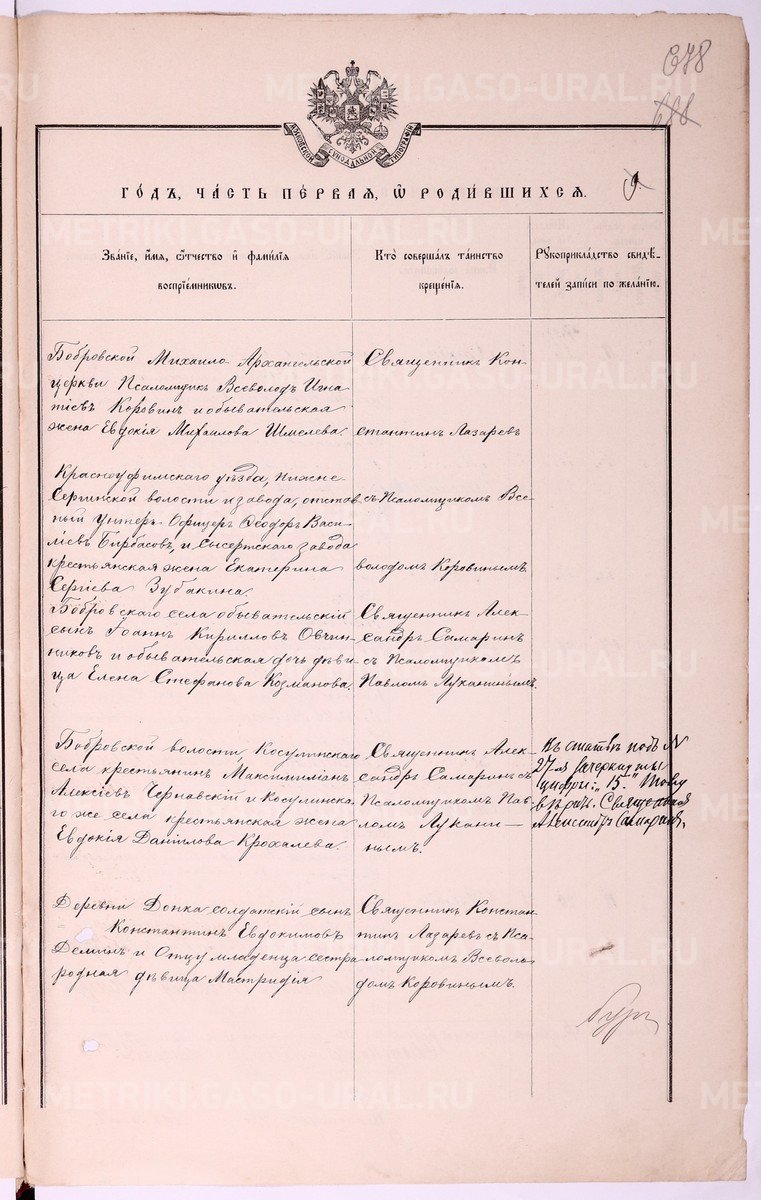 678
688
МОСКОВСКОЙ СѴНОДАЛЬНОЙ ТИПОГРАФІИ
ГО́ДЪ, ЧА́СТЬ ПЕ́РВАЯ, Ѡ҆ РОДИ́ВШИХСЯ.
9.
Зва́нїе, и҆́мя, ѻ҆́тчество и҆ фами́лїя
воспрїе́мникѡвъ.
Кто̀ соверша́лъ та́инство
креще́нїя.
Рꙋкоприкла́дство свидѣ́-
телей за́писи по жела́нїю.
Бобровской Михаило-Архангельской
церкви Псаломщикъ Всеволодъ Игна-
тіевъ Коровинъ и обывательская
жена Евдокія Михаилова Шмелева.
Священникъ Кон-
стантинъ Лазаревъ
Красноуфимскаго уѣзда, Нижне-
Сергинской волости и завода, отстав-
ный унтеръ-Офицеръ Ѳеодоръ Васи-
ліевъ Бирбасовъ, и Сысертскаго завода
крестьянская жена Екатерина
Сергіева Зубакина.
съ Псаломщикомъ Все-
володомъ Коровинымъ.
Бобровскаго села обывательскій
сынъ Іоаннъ Кирилловъ Овчин-
никовъ и обывательская дочь дѣви-
ца Елена Стефанова Козманова.
Священникъ Алек-
сандръ Самаринъ
съ Псаломщикомъ
Павломъ Луканинымъ.
Бобровской волости, Косулинскаго
села крестьянинъ Максимиліанъ
Алексіевъ Чернавскій и Косулинска-
го же села крестьянская жена
Евдокія Данілова Крохалева.
Священникъ Алек-
сандръ Самаринъ съ
Псаломщикомъ Пав-
ломъ Лукани-
нымъ.
Къ статьѣ подъ N
27-мъ зачеркнуты
цифры „15."
вѣренъ. Священникъ
Александръ Самаринъ.
Деревни Донка солдатскій сынъ
Константинъ Евдокимовъ
Деминъ и Отцу младенца сестра
родная дѣвица Мастридія
Священникъ Констан-
тинъ Лазаревъ съ Пса-
ломщикомъ Всеволо-
домъ Коровинымъ.
METRIKI.GASO-URAL.RU